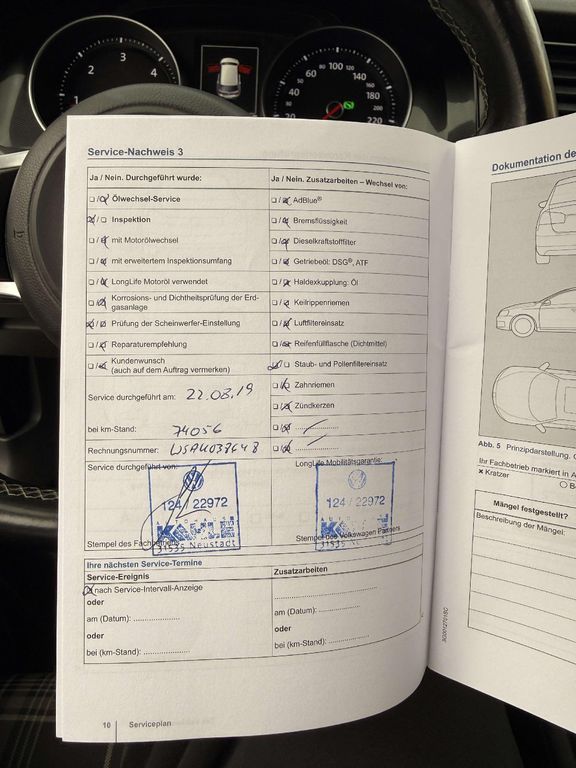 1
2
3
4
20
60
80
100
120
140
180
220
Service-Nachweis 3
Ja / Nein. Durchgeführt wurde:
Ölwechsel-Service
Inspektion
mit Motorölwechsel
mit erweitertem Inspektionsumfang
LongLife Motoröl verwendet
Korrosions- und Dichtheitsprüfung der Erd-
gasanlage
Prüfung der Scheinwerfer-Einstellung
Reparaturempfehlung
Kundenwunsch
(auch auf dem Auftrag vermerken)
Service durchgeführt am: 22.08.19
bei km-Stand: 74056
Rechnungsnummer:
Service durchgeführt von:
124 / 22972
31535 Neustadt
Stempel des Fachbetriebs
Ja / Nein. Zusatzarbeiten – Wechsel von:
AdBlue®
Bremsflüssigkeit
Dieselkraftstofffilter
Getriebeöl: DSG®, ATF
Haldexkupplung: Öl
Keilrippenriemen
Luftfiltereinsatz
Reifenfüllflasche (Dichtmittel)
Staub- und Pollenfiltereinsatz
Zahnriemen
Zündkerzen
LongLife Mobilitätsgarantie:
124 / 22972
31535 Neustadt
Stempel des Volkswagen Partners
Ihre nächsten Service-Termine
Service-Ereignis
nach Service-Intervall-Anzeige
oder
am (Datum): ....................
oder
bei (km-Stand): ....................
Zusatzarbeiten
am (Datum): ....................
oder
bei (km-Stand): ....................
10 | Serviceplan
Dokumentation de
Abb. 5 Prinzipdarstellung.
Ihr Fachbetrieb markiert in A
× Kratzer
Mängel festgestellt?
Beschreibung der Mängel: